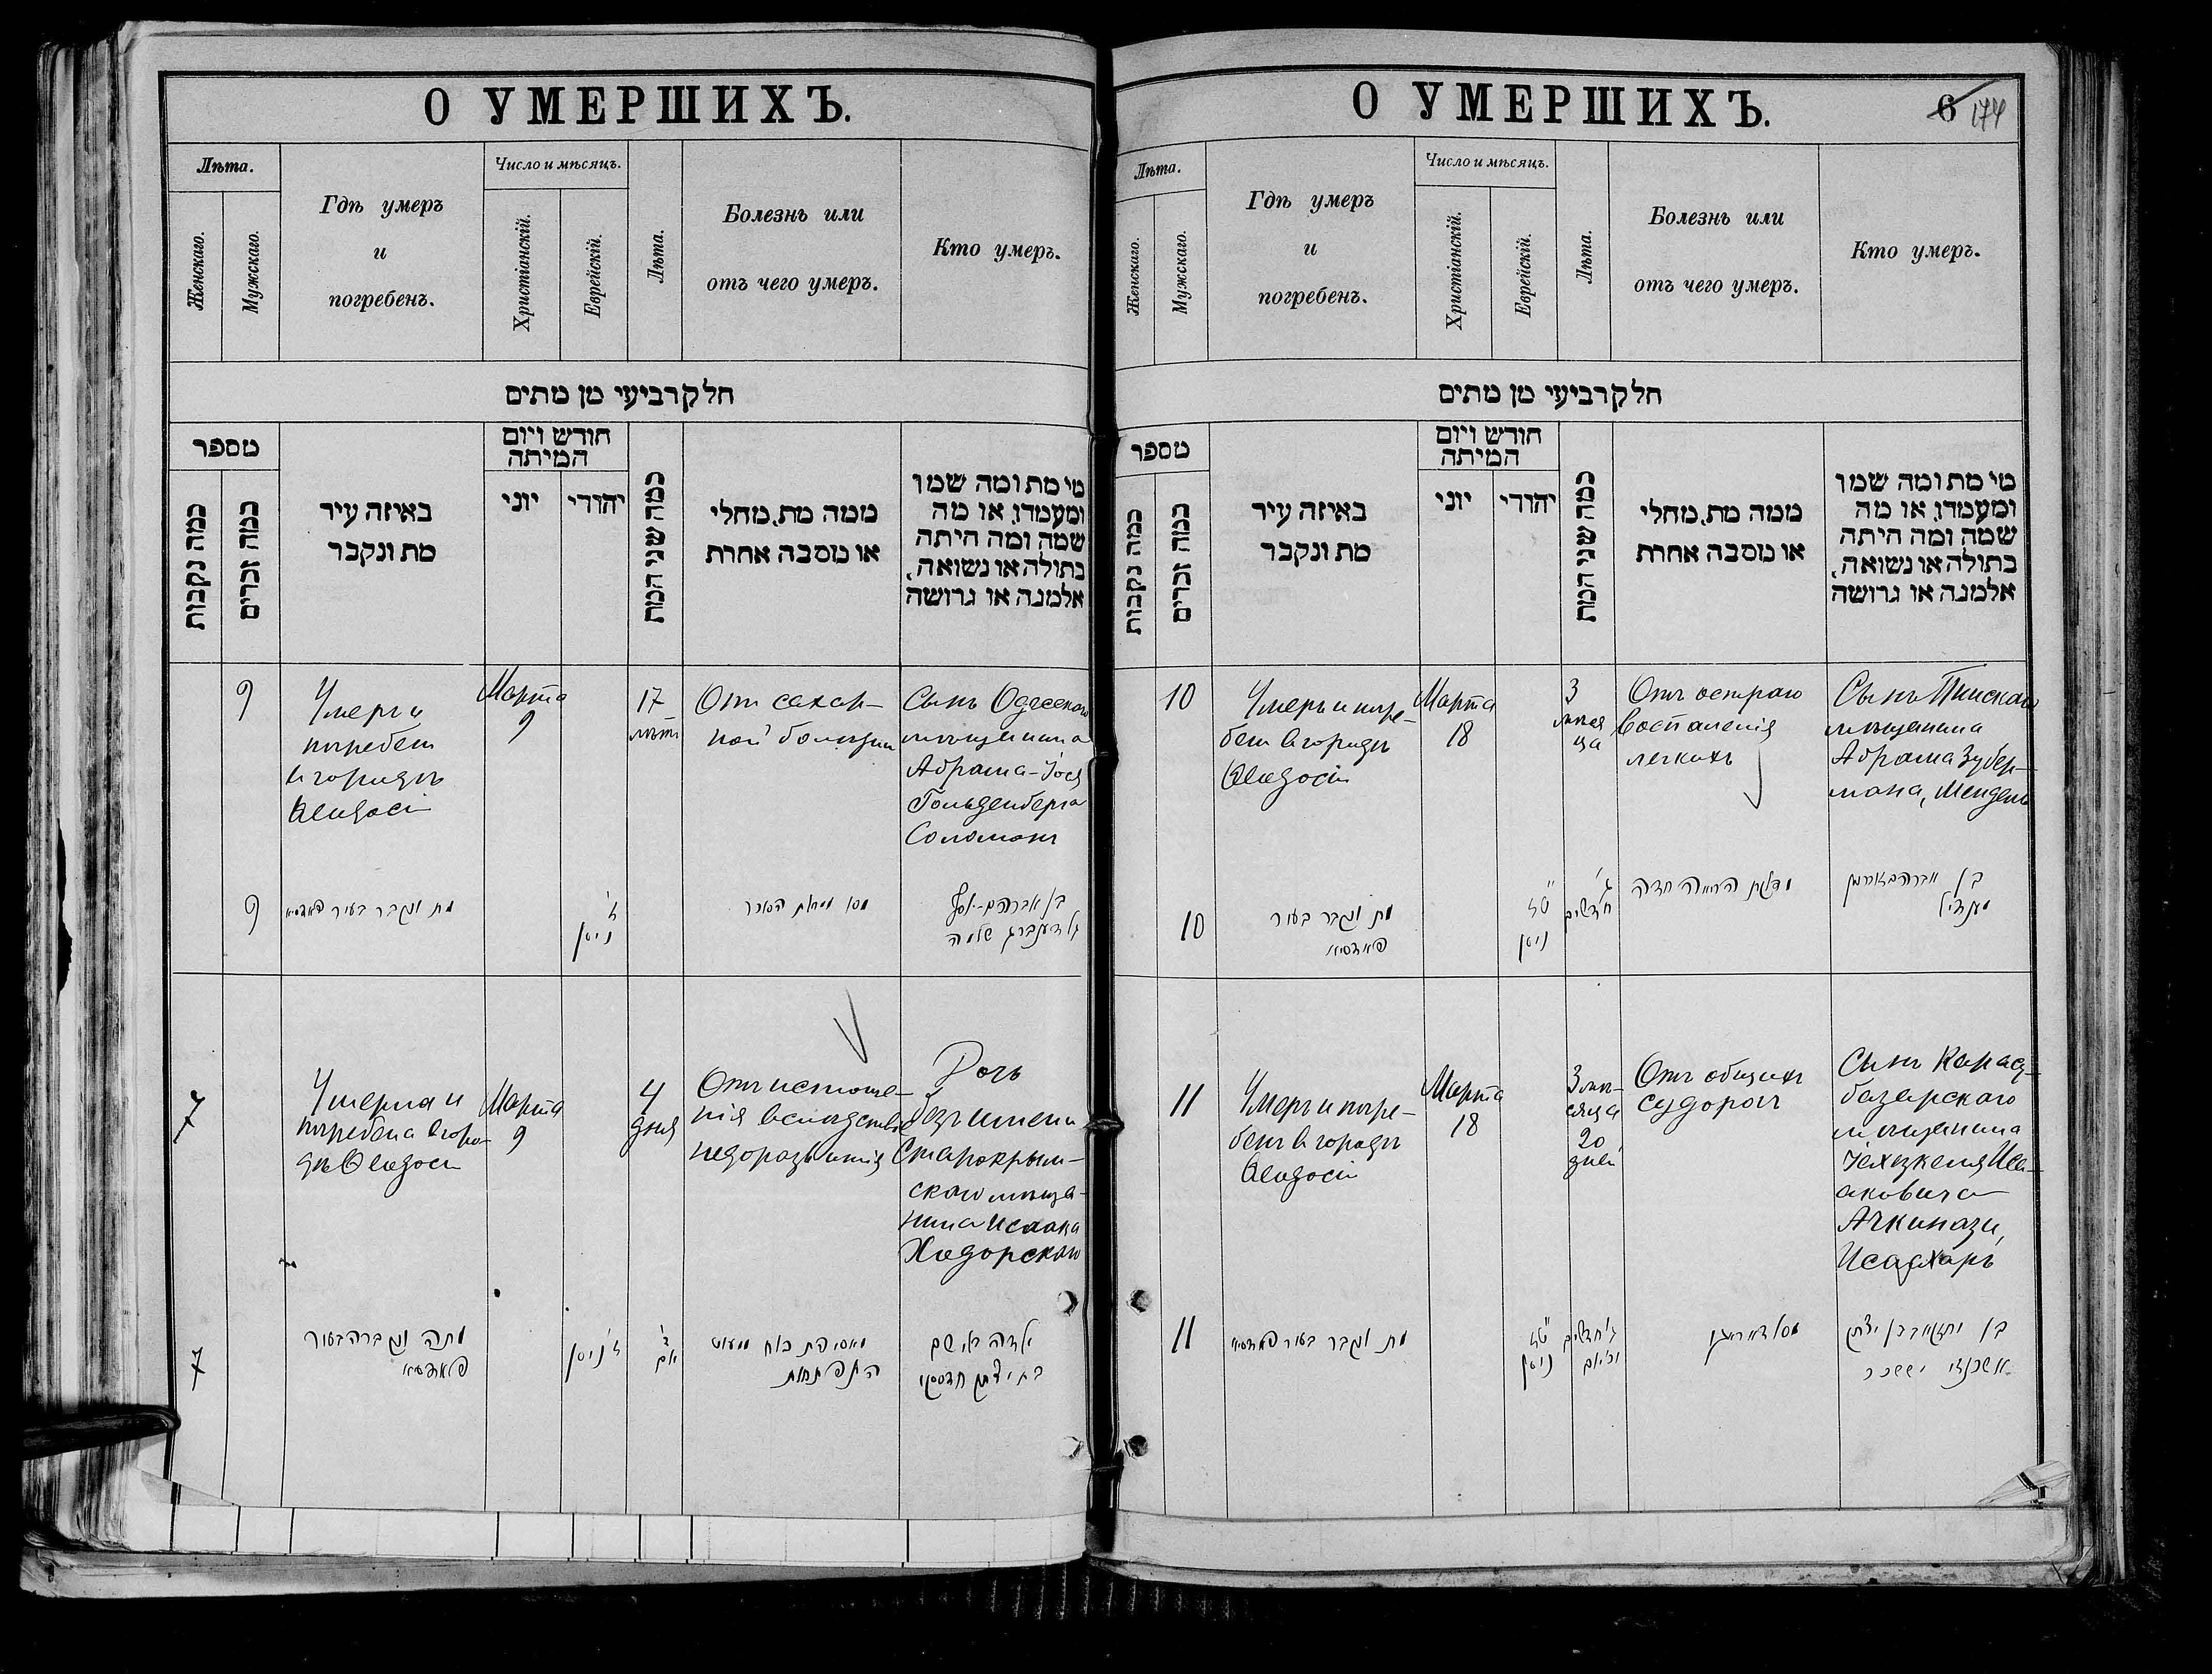 О УМЕРШИХЪ.
Лѣта.
Женскаго.
Мужскаго.
Гдѣ умеръ
и
погребенъ.
Число и мѣсяцъ.
Христіанскій.
Еврейскій.
Лѣта.
Болезнь или
отъ чего умеръ.
Кто умеръ.
חלק רביעי מן מתים
מספר
כמה נקבות
כמה זכרים
באיזה עיר
מת ונקבר
חודש ויום
המיתה
יוני
יהודי
כמה שני המת
ממה מת, מחלי
או מסבה אחרת
מי מת ומה שמו
ומעמדו, או מה
שמה ומה היתה
בתולה או נשואה,
אלמנה או גרושה
9
Умеръ и
погребенъ
въ городѣ
Ѳеодосіи
Марта
9
17
лѣтъ
Отъ сахар-
ной болѣзни
Сынъ Одесскаго
мѣщанина
Абрама-Іося
Гольденберга
Соломонъ
9
מת ונקבר בעיר
ז'
ניסן
בן אברהם-יוסף
גלדענברג שלמה
7
Умерла и
погребена въ горо-
дѣ Ѳеодосіи
Марта
9
4
дня
Отъ истоще-
нія вслѣдствіе
недоразвитія
Дочь
безъ имени
Старокрым-
скаго мѣща-
нина Исаака
Ходорскаго
7
מתה ונקברה בעיר
פֿעאדאסיא
ז' ניסן
ד'
יום
מאפיסת כח ומעוט
התפתחות
ילדה בלי שם
בת יצחק
О УМЕРШИХЪ.
6 174
Лѣта.
Женскаго.
Мужскаго.
Гдѣ умеръ
и
погребенъ.
Число и мѣсяцъ.
Христіанскій.
Еврейскій.
Лѣта.
Болезнь или
отъ чего умеръ.
Кто умеръ.
חלק רביעי מן מתים
מספר
כמה נקבות
כמה זכרים
באיזה עיר
מת ונקבר
חודש ויום
המיתה
יוני
יהודי
כמה שני המת
ממה מת, מחלי
או מסבה אחרת
מי מת ומה שמו
ומעמדו, או מה
שמה ומה היתה
בתולה או נשואה,
אלמנה או גרושה
10
Умеръ и погре-
бенъ въ городѣ
Ѳеодосіи
Марта
18
3
мѣся
ца
Отъ остраго
воспаленія
легкихъ
Сынъ Пинскаго
мѣщанина
Абрама Зубер-
мана, Мендель
10
מת ונקבר בעיר
ט"ז
ניסן
ג'
חדשים
מדלקת הריאה חדה
בן
מענדיל
11
Умеръ и погре-
бенъ въ городѣ
Ѳеодосіи
Марта
18
3 мѣ-
сяца
20
дней
Отъ общихъ
судорогъ
Сынъ Карасу-
базарскаго
мѣщанина
Іехезкеля Иса-
аковича
Ачкинази,
Исасхаръ
11
מת ונקבר בעיר
ט"ז
ניסן
ג' חדשים
וכ' יום
בן יחזקאל בן יצחק
אשכנזי יששכר